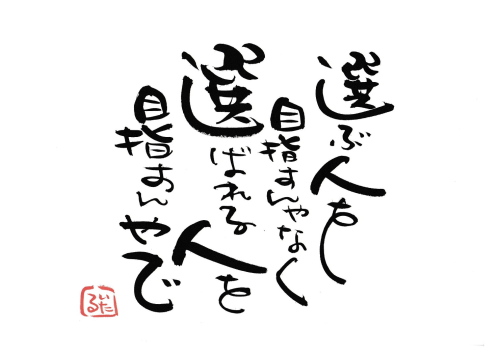 選ぶ人を
目指すんやなく
選ばれる人を
目指すんやで